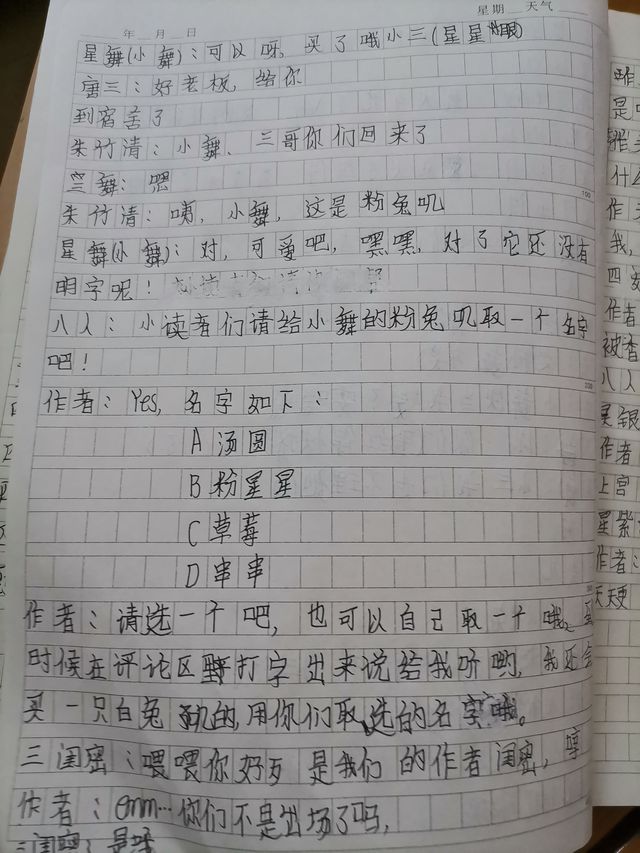 年 月 日
星期 天气
星舞(小舞)：可以呀，买了哦小三(星星眼)
唐三：好老板，给你
到宿舍了
朱竹清：小舞、三哥你们回来了
三舞：嗯
朱竹清：咦，小舞，这是粉兔叽
星舞(小舞)：对，可爱吧，嘿嘿，对了它还没有
明字呢！
八人：小读者们请给小舞的粉兔叽取一个名字
吧！
作者：Yes，名字如下：
A 汤圆
B 粉星星
C 草莓
D 串串
作者：请选一个吧，也可以自己取一个哦。到
时候在评论区打字出来说给我听哟，我还会
买一只白兔叽的，用你们取选的名字哦。
三闺密：喂喂你好歹是我们的作者闺密，哼
作者：emm…你们不是出场了吗，
三闺密：是
100
200
唯
是
什么
作
我，
四
作者
被查
八人
吴银
作者
上宫
星紫
作者：
天使